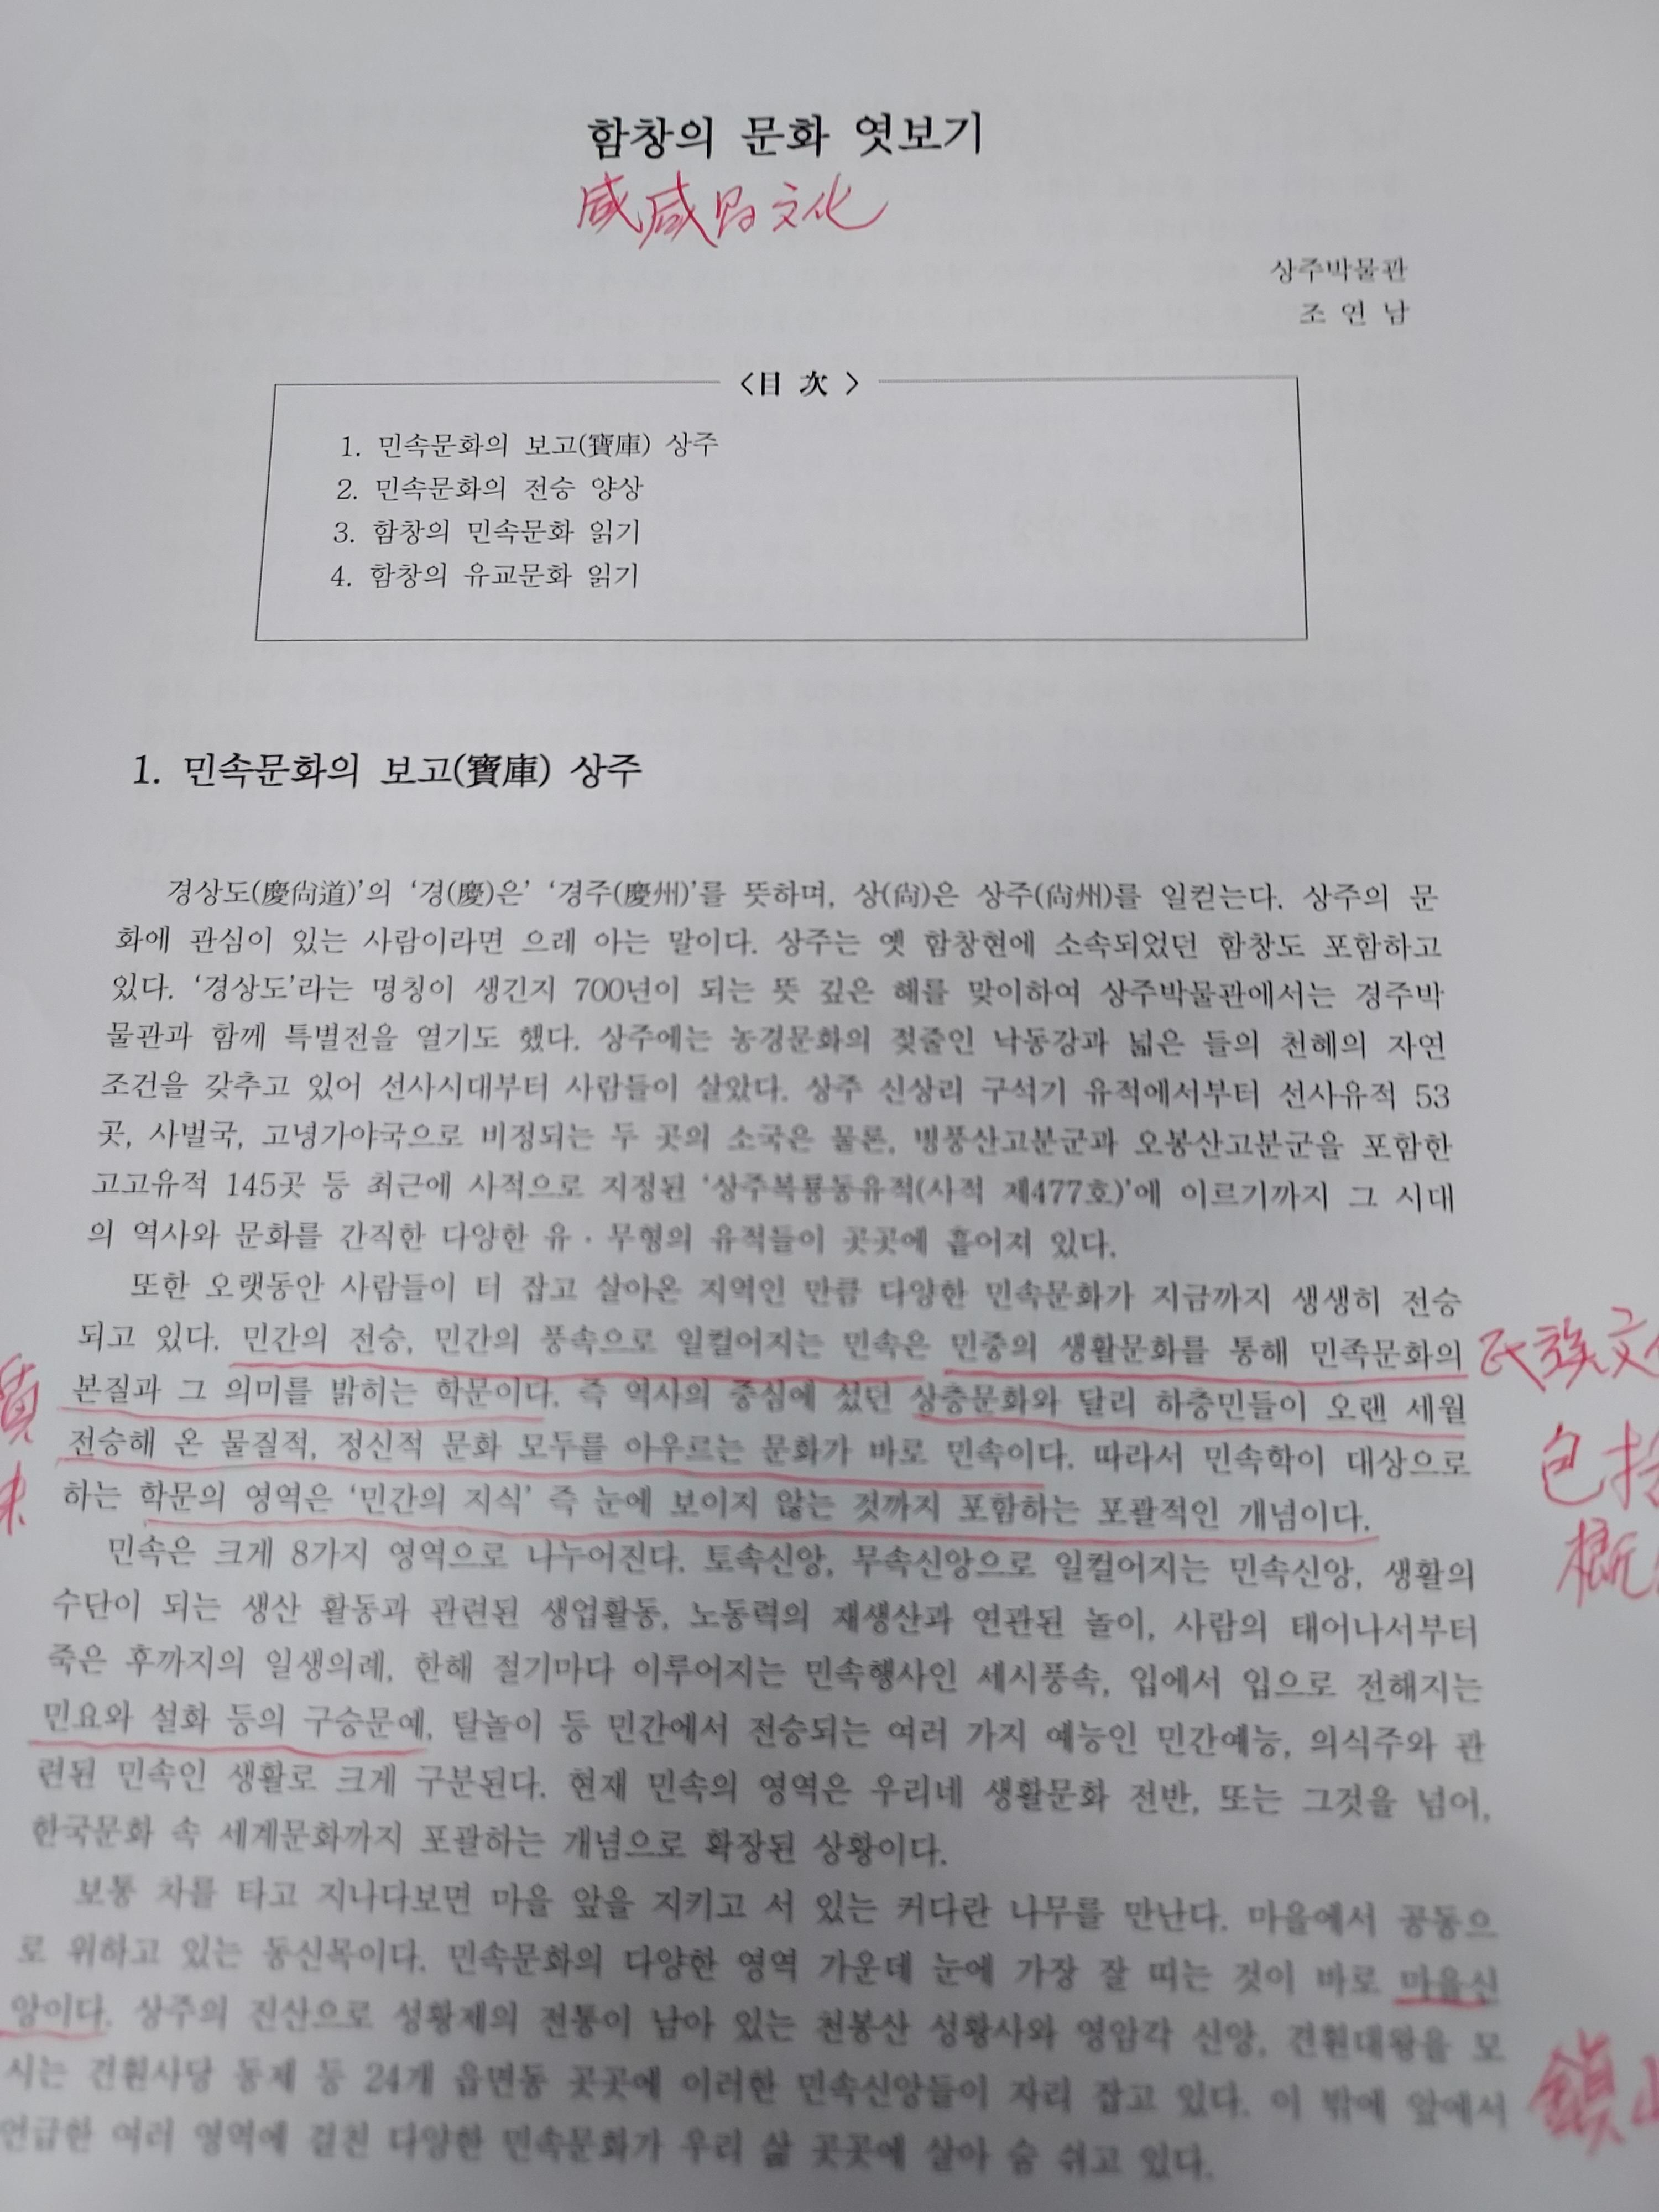 함창의 문화 엿보기
咸 文化
상주박물관
조 인 남
<目 次>
1. 민속문화의 보고(寶庫) 상주
2. 민속문화의 전승 양상
3. 함창의 민속문화 읽기
4. 함창의 유교문화 읽기
1. 민속문화의 보고(寶庫) 상주
경상도(慶尙道)’의 ‘경(慶)은’ ‘경주(慶州)’를 뜻하며, 상(尙)은 상주(尙州)를 일컫는다. 상주의 문
화에 관심이 있는 사람이라면 으레 아는 말이다. 상주는 옛 함창현에 소속되었던 함창도 포함하고
있다. ‘경상도’라는 명칭이 생긴지 700년이 되는 뜻 깊은 해를 맞이하여 상주박물관에서는 경주박
물관과 함께 특별전을 열기도 했다. 상주에는 농경문화의 젖줄인 낙동강과 넓은 들의 천혜의 자연
조건을 갖추고 있어 선사시대부터 사람들이 살았다. 상주 신상리 구석기 유적에서부터 선사유적 53
곳, 사벌국, 고녕가야국으로 비정되는 두 곳의 소국은 물론, 병풍산고분군과 오봉산고분군을 포함한
고고유적 145곳 등 최근에 사적으로 지정된 ‘상주복룡동유적(사적 제477호)’에 이르기까지 그 시대
의 역사와 문화를 간직한 다양한 유 · 무형의 유적들이 곳곳에 흩어져 있다.
또한 오랫동안 사람들이 터 잡고 살아온 지역인 만큼 다양한 민속문화가 지금까지 생생히 전승
되고 있다. 민간의 전승, 민간의 풍속으로 일컬어지는 민속은 민중의 생활문화를 통해 민족문화의 民族文
본질과 그 의미를 밝히는 학문이다. 즉 역사의 중심에 섰던 상층문화와 달리 하층민들이 오랜 세월
전승해 온 물질적, 정신적 문화 모두를 아우르는 문화가 바로 민속이다. 따라서 민속학이 대상으로 包括
하는 학문의 영역은 ‘민간의 지식’ 즉 눈에 보이지 않는 것까지 포함하는 포괄적인 개념이다.
민속은 크게 8가지 영역으로 나누어진다. 토속신앙, 무속신앙으로 일컬어지는 민속신앙, 생활의 概
수단이 되는 생산 활동과 관련된 생업활동, 노동력의 재생산과 연관된 놀이, 사람의 태어나서부터
죽은 후까지의 일생의례, 한해 절기마다 이루어지는 민속행사인 세시풍속, 입에서 입으로 전해지는
민요와 설화 등의 구승문예, 탈놀이 등 민간에서 전승되는 여러 가지 예능인 민간예능, 의식주와 관
련된 민속인 생활로 크게 구분된다. 현재 민속의 영역은 우리네 생활문화 전반, 또는 그것을 넘어,
한국문화 속 세계문화까지 포괄하는 개념으로 확장된 상황이다.
보통 차를 타고 지나다보면 마을 앞을 지키고 서 있는 커다란 나무를 만난다. 마을에서 공동으
로 위하고 있는 동신목이다. 민속문화의 다양한 영역 가운데 눈에 가장 잘 띠는 것이 바로 마을신
앙이다. 상주의 진산으로 성황제의 전통이 남아 있는 천봉산 성황사와 영암각 신앙, 견훤대왕을 모
시는 견훤사당 동제 등 24개 읍면동 곳곳에 이러한 민속신앙들이 자리 잡고 있다. 이 밖에 앞에서 鎭山
언급한 여러 영역에 걸친 다양한 민속문화가 우리 삶 곳곳에 살아 숨 쉬고 있다.